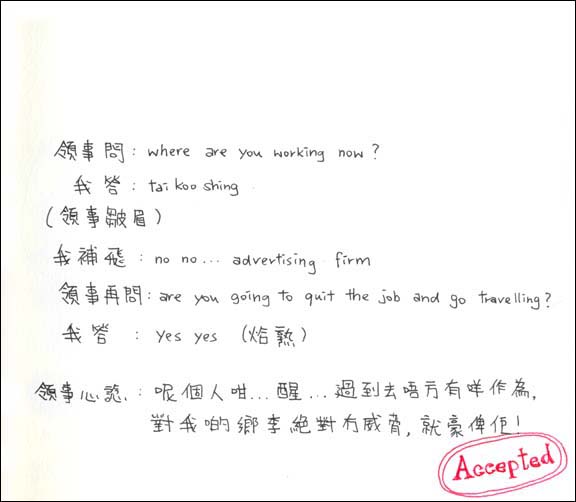 領事問：where are you working now?
我答：tai koo shing
(領事皺眉)
我補飛：no no... advertising firm
領事再問：are you going to quit the job and go travelling?
我答：yes yes (焓熟)
領事心諗：呢個人咁...醒...過到去唔方有咩作為,
對我啲鄉李絕對冇威脅,就豪俾佢!
Accepted